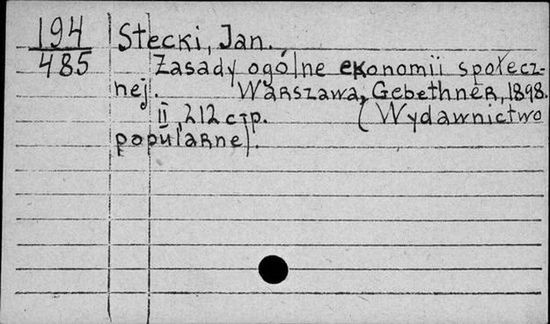 194 Stecki, Jan.
485 Zasady ogólne ekonomii społecz-
nej. Warszawa, Gebethner, 1898.
II, 212 стр. (Wydawnictwo
popularne).